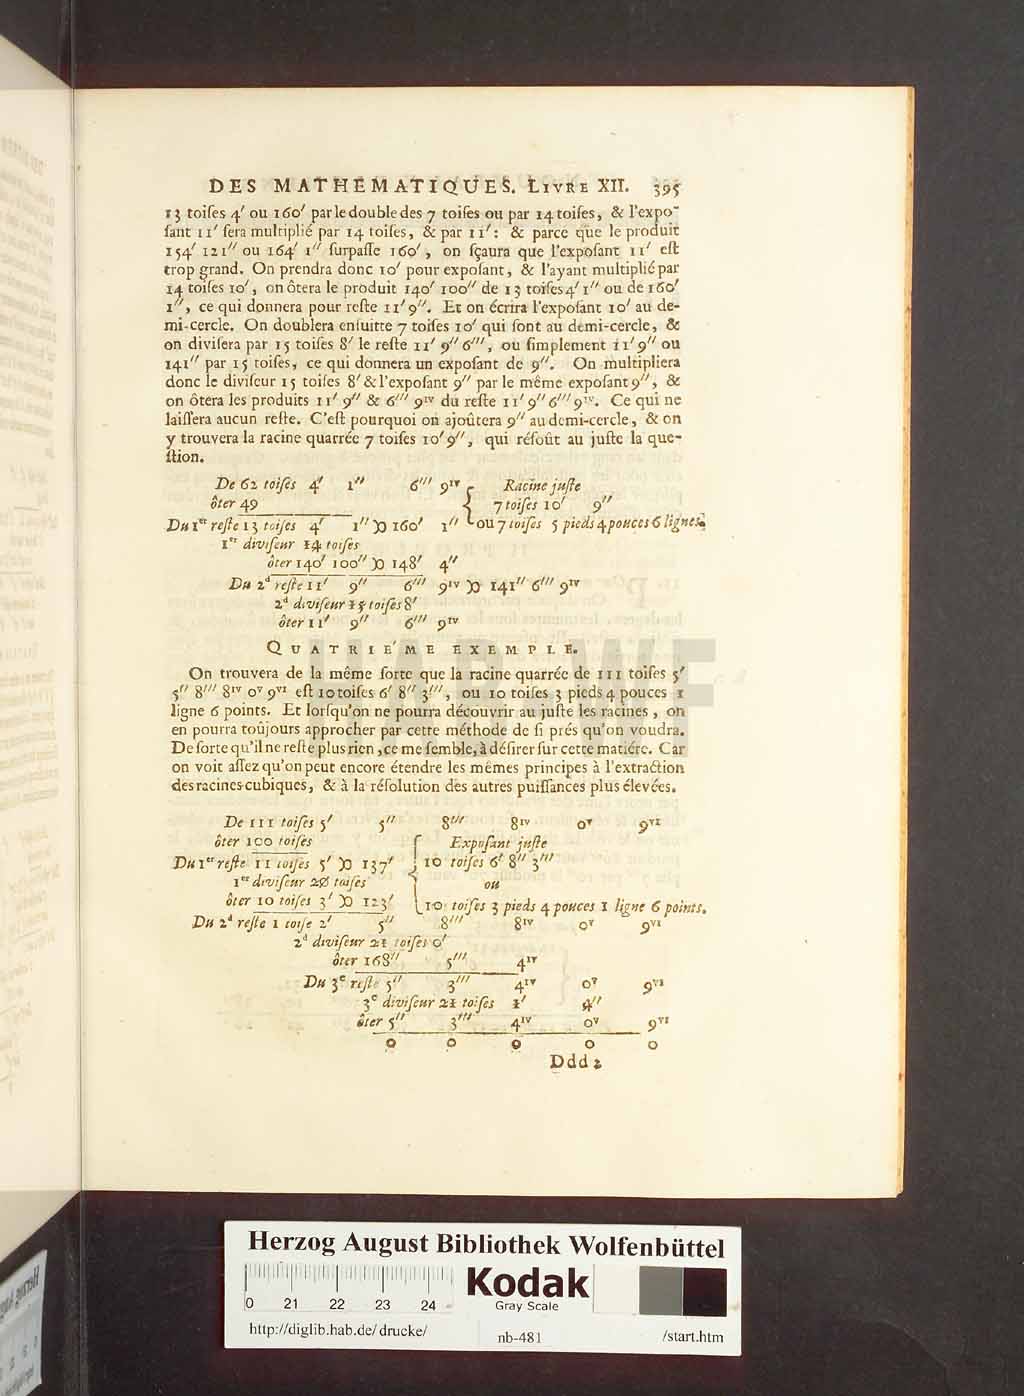 DES MATHEMATIQUES. LIVRE XII. 395
13 toiſes 4′ ou 160′ par le double des 7 toiſes ou par 14 toiſes, & l'expo-
ſant 11′ ſera multiplié par 14 toiſes, & par 11′: & parce que le produit
154′ 121″ ou 164′ 1″ ſurpaſſe 160′, on ſçaura que l'expoſant 11′ eſt
trop grand. On prendra donc 10′ pour expoſant, & l'ayant multiplié par
14 toiſes 10′, on ôtera le produit 140′ 100″ de 13 toiſes 4′ 1″ ou de 160′
1″, ce qui donnera pour reſte 11′ 9″. Et on écrira l'expoſant 10′ au de-
mi-cercle. On doublera enſuitte 7 toiſes 10′ qui ſont au demi-cercle, &
on diviſera par 15 toiſes 8′ le reſte 11′ 9″ 6‴, ou ſimplement 11′ 9″ ou
141″ par 15 toiſes, ce qui donnera un expoſant de 9″. On multipliera
donc le diviſeur 15 toiſes 8′ & l'expoſant 9″ par le même expoſant 9″, &
on ôtera les produits 11′ 9″ & 6‴ 9ᴵⱽ du reſte 11′ 9″ 6‴ 9ᴵⱽ. Ce qui ne
laiſſera aucun reſte. C'eſt pourquoi on ajoûtera 9″ au demi-cercle, & on
y trouvera la racine quarrée 7 toiſes 10′ 9″, qui réſoût au juſte la que-
ſtion.
De 62 toiſes 4′ 1″ 6‴ 9ᴵⱽ { Racine juſte
ôter 49 7 toiſes 10′ 9″
Du 1er reſte 13 toiſes 4′ 1″ ꝏ 160′ 1″ ou 7 toiſes 5 pieds 4 pouces 6 lignes.
1er diviſeur 14 toiſes
ôter 140′ 100″ ꝏ 148′ 4″
Du 2d reſte 11′ 9″ 6‴ 9ᴵⱽ ꝏ 141″ 6‴ 9ᴵⱽ
2d diviſeur 15 toiſes 8′
ôter 11′ 9″ 6‴ 9ᴵⱽ
QUATRIÉME EXEMPLE.
On trouvera de la même ſorte que la racine quarrée de 111 toiſes 5′
5″ 8‴ 8ᴵⱽ 0ⱽ 9ⱽᴵ eſt 10 toiſes 6′ 8″ 3‴, ou 10 toiſes 3 pieds 4 pouces 1
ligne 6 points. Et lorſqu'on ne pourra découvrir au juſte les racines, on
en pourra toûjours approcher par cette méthode de ſi prés qu'on voudra.
De ſorte qu'il ne reſte plus rien, ce me ſemble, à déſirer ſur cette matiére. Car
on voit aſſez qu'on peut encore étendre les mêmes principes à l'extraction
des racines cubiques, & à la réſolution des autres puiſſances plus élevées.
De 111 toiſes 5′ 5″ 8‴ 8ᴵⱽ 0ⱽ 9ⱽᴵ
ôter 100 toiſes { Expoſant juſte
Du 1er reſte 11 toiſes 5′ ꝏ 137′ 10 toiſes 6′ 8″ 3‴
1er diviſeur 20 toiſes ou
ôter 10 toiſes 3′ ꝏ 123′ 10 toiſes 3 pieds 4 pouces 1 ligne 6 points.
Du 2d reſte 1 toiſe 2′ 5″ 8‴ 8ᴵⱽ 0ⱽ 9ⱽᴵ
2d diviſeur 21 toiſes 0′
ôter 168″ 5‴ 4ᴵⱽ
Du 3e reſte 5″ 3‴ 4ᴵⱽ 0ⱽ 9ⱽᴵ
3e diviſeur 21 toiſes 1′ 4″
ôter 5″ 3‴ 4ᴵⱽ 0ⱽ 9ⱽᴵ
0 0 0 0 0
Ddd 2
HAB-WF
Herzog August Bibliothek Wolfenbüttel
Kodak
Gray Scale
0 21 22 23 24
http://diglib.hab.de/drucke/ nb-481 /start.htm